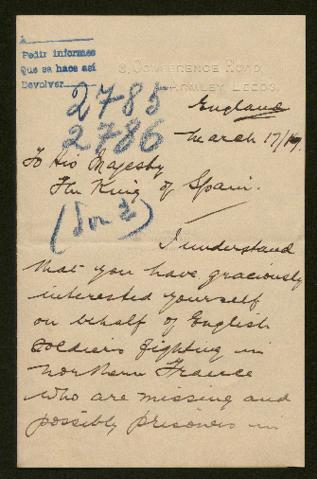 A
Pedir informes
Que se hace así
Devolver
2785
2786
(Son 2)
3, Conference Road,
Armley, Leeds.
England
March 17/17.
To His Majesty
The King of Spain.
I understand
that you have graciously
interested yourself
on behalf of English
soldiers fighting in
Northern France
who are missing and
possibly prisoners in